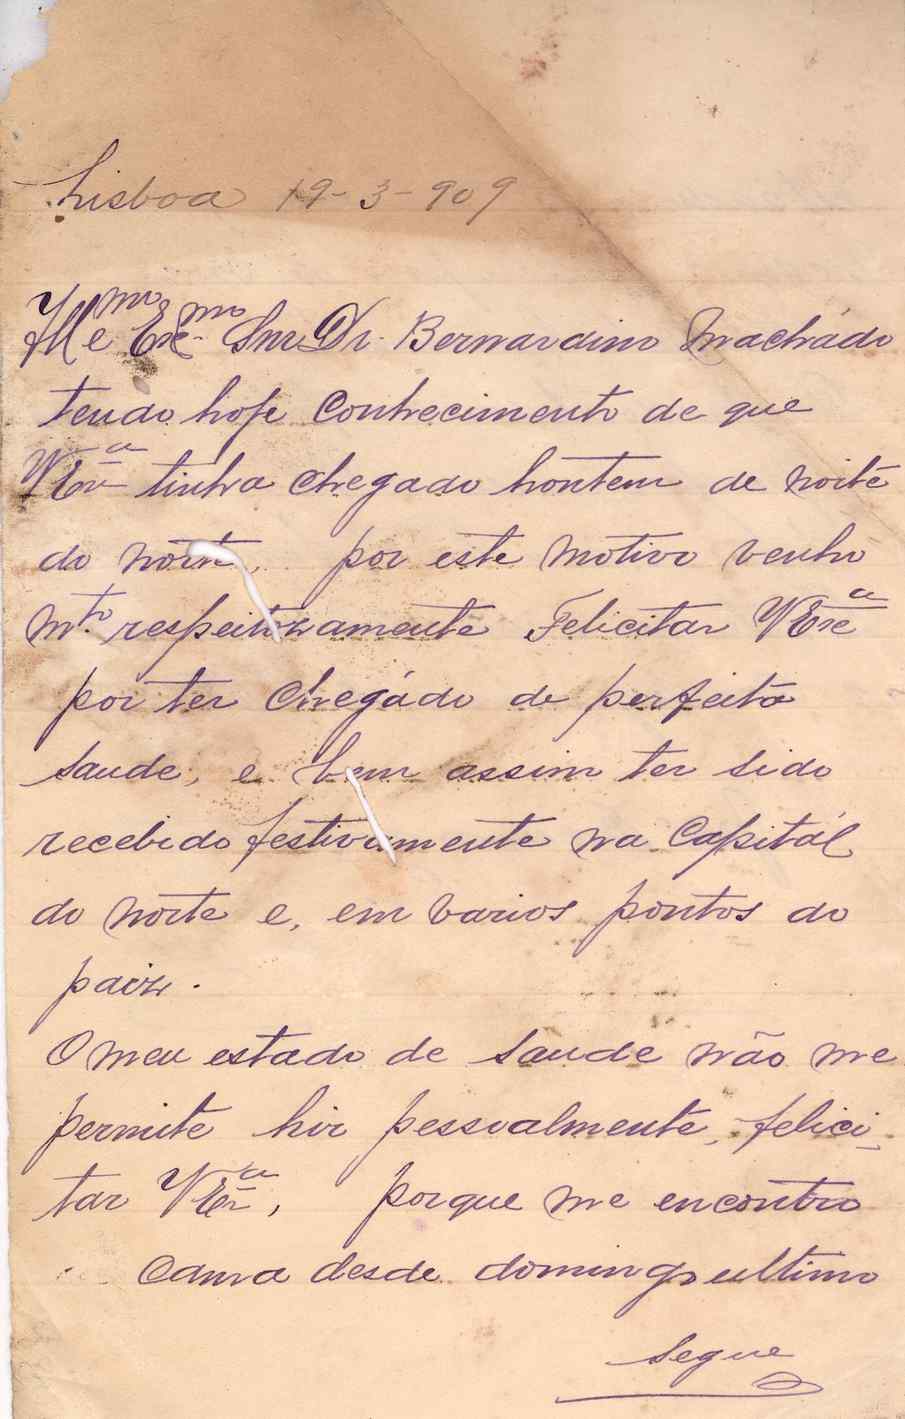 Lisboa 19-3-909
Illmo Excmo Snr Dr. Bernardino Machádo
tendo hoje Conhecimento de que
VExa tinha chegado hontem de noite
do norte, por este motivo venho
mto. respeitozamente Felicitar VExca
por ter chegádo de perfeita
saude, e bem assim ter sido
recebido festivamente na Capitál
do norte e, em varios pontos do
paiz.
O meu estado de saude não me
permite hir pessoalmente, felici-
tar VExa, porque me encontro
cama desde domingo ultimo
Segue